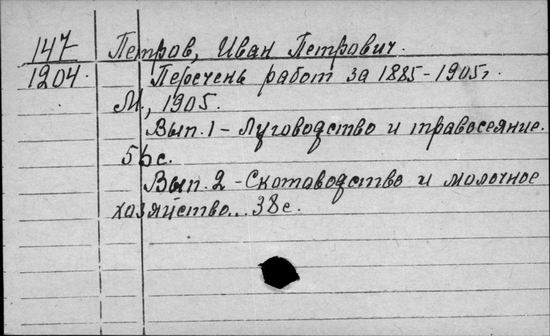 147 Петров, Иван Петрович.
1204. Перечень работ за 1885-1905г.
М., 1905.
Вып.1 - Луговодство и травосеяние.
56 с.
Вып.2 - Скотоводство и молочное
хозяйство... 38с.